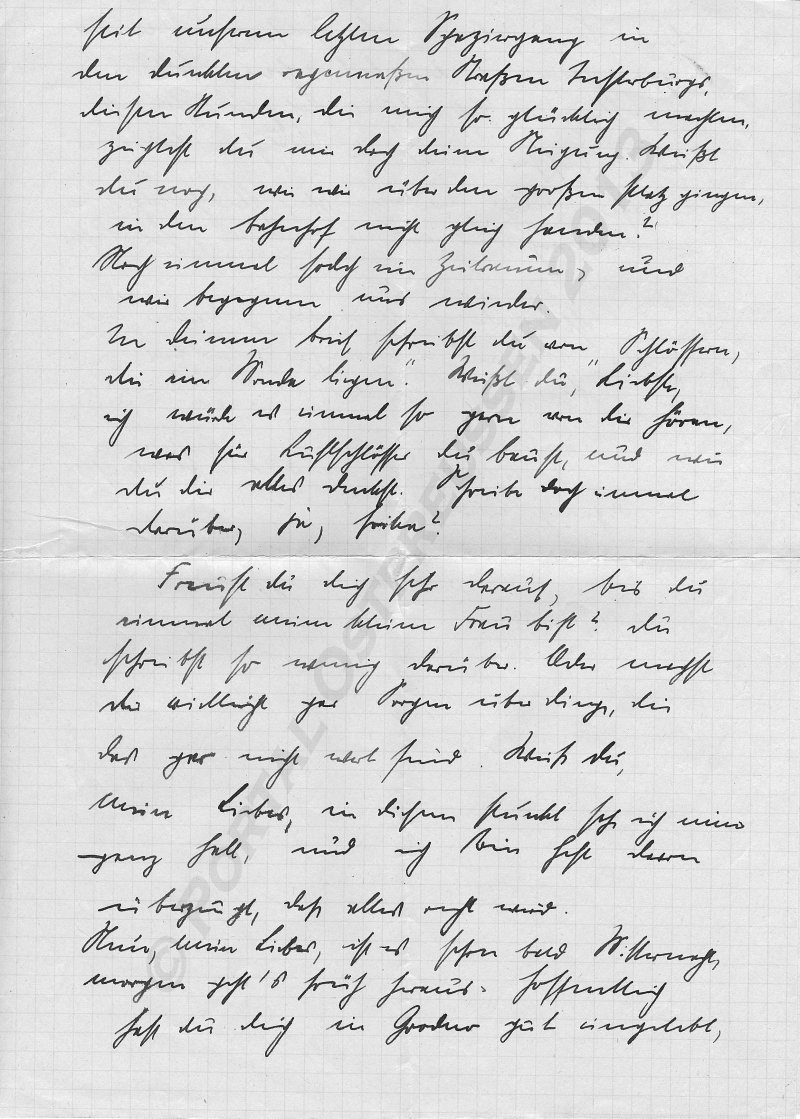 seit unserem letzten Spaziergang in
den dunklen regennaßen Straßen Insterburgs,
diesen Stunden, die mich so glücklich machten,
zeigtest du mir doch deine Neigung. Weißt
du noch, wie wir über den großen Platz gingen,
in den Bahnhof nicht gleich fanden?
Noch einmal solch ein Zeitraum, und
wir begegnen uns wieder.
In deinem Brief schreibst du von "Schlössern,
die im Monde liegen". Weißt du, Liebste,
ich würde es einmal so gern von dir hören,
was für Luftschlösser du baust, und wie
du dir alles denkst. Schreibe doch einmal
darüber, ja,
Freust du dich sehr darauf, bis du
einmal meine kleine Frau bist? du
schreibst so wenig darüber. Oder machst
du vielleicht gar Sorgen über dinge, die
das gar nicht wert sind. Weißt du,
mein Liebes, in diesem Punkt sehe ich nun
ganz hell, und ich bin fest davon
überzeugt, daß alles recht wird.
Nun, mein Liebes, ist es schon bald Mitternacht,
morgen geht's früh heraus. Hoffentlich
hast du dich in Grodno gut eingelebt,
© PORTAL OSTPREUSSEN 2013